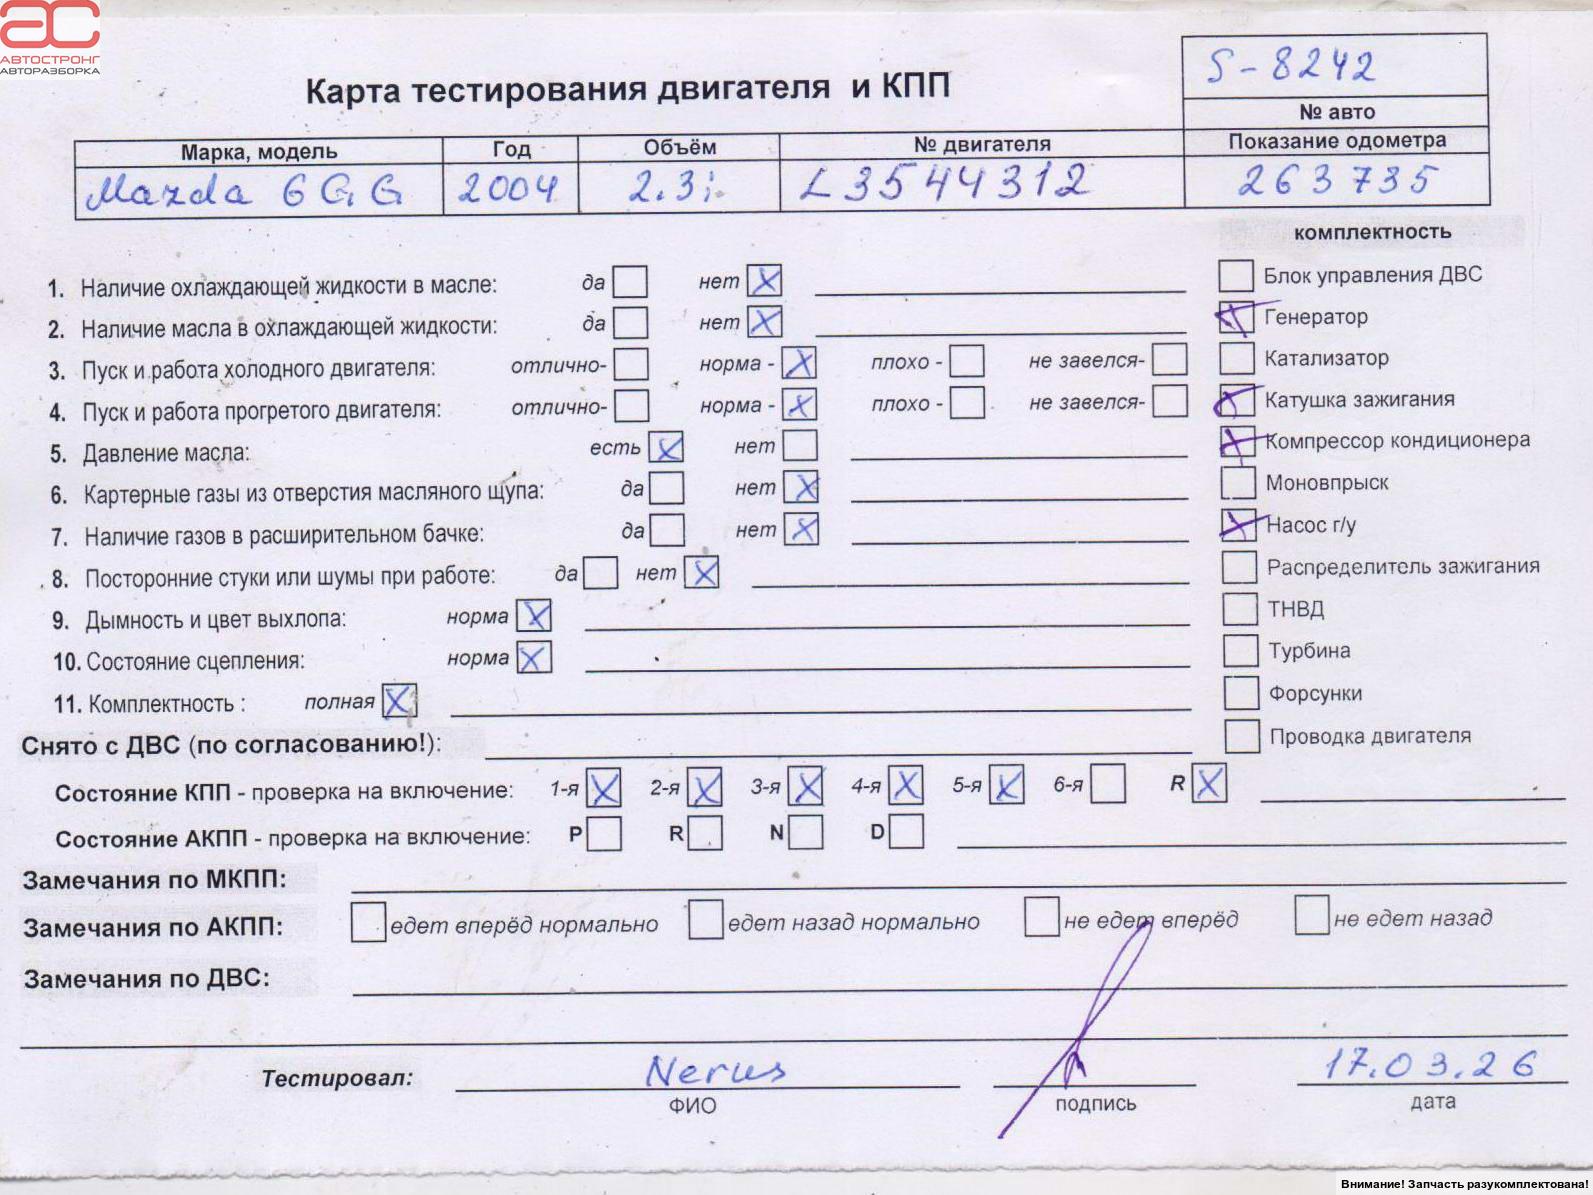 АС
АВТОСТРОНГ
АВТОРАЗБОРКА
S-8242
Карта тестирования двигателя и КПП
№ авто
Марка, модель Год Объём № двигателя Показание одометра
Mazda 6 GG 2004 2.3i L3544312 263735
комплектность
1. Наличие охлаждающей жидкости в масле: да нет X
Блок управления ДВС
2. Наличие масла в охлаждающей жидкости: да нет X
X Генератор
3. Пуск и работа холодного двигателя: отлично- норма - X плохо - не завелся-
Катализатор
4. Пуск и работа прогретого двигателя: отлично- норма - X плохо - не завелся-
X Катушка зажигания
5. Давление масла: есть X нет
X Компрессор кондиционера
6. Картерные газы из отверстия масляного щупа: да нет X
Моновпрыск
7. Наличие газов в расширительном бачке: да нет X
X Насос г/у
8. Посторонние стуки или шумы при работе: да нет X
Распределитель зажигания
9. Дымность и цвет выхлопа: норма X
ТНВД
10. Состояние сцепления: норма X
Турбина
11. Комплектность : полная X
Форсунки
Снято с ДВС (по согласованию!):
Проводка двигателя
Состояние КПП - проверка на включение: 1-я X 2-я X 3-я X 4-я X 5-я X 6-я R X
Состояние АКПП - проверка на включение: P R N D
Замечания по МКПП:
Замечания по АКПП: едет вперёд нормально едет назад нормально не едет вперёд не едет назад
Замечания по ДВС:
Тестировал: Nerus 17.03.26
ФИО подпись дата
Внимание! Запчасть разукомплектована!